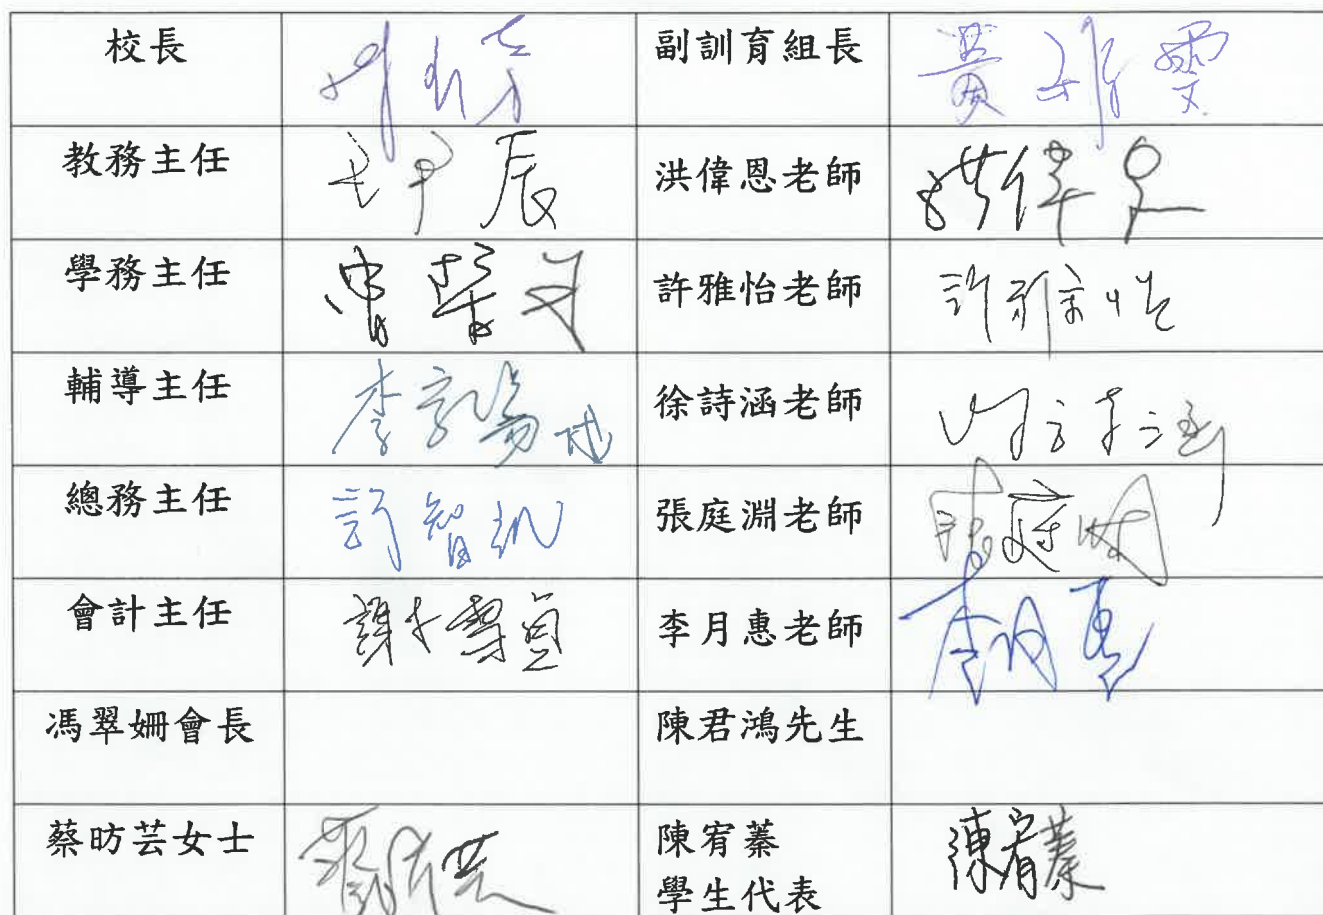 校長
副訓育組長 黃
教務主任 許 辰
洪偉恩老師 洪偉恩
學務主任 曾
許雅怡老師 許雅怡
輔導主任 李
徐詩涵老師 徐詩涵
總務主任 許智
張庭淵老師 張庭淵
會計主任 謝 雪貞
李月惠老師 李月惠
馮翠姍會長
陳君鴻先生
蔡昉芸女士 蔡昉芸
陳宥蓁 陳宥蓁
學生代表